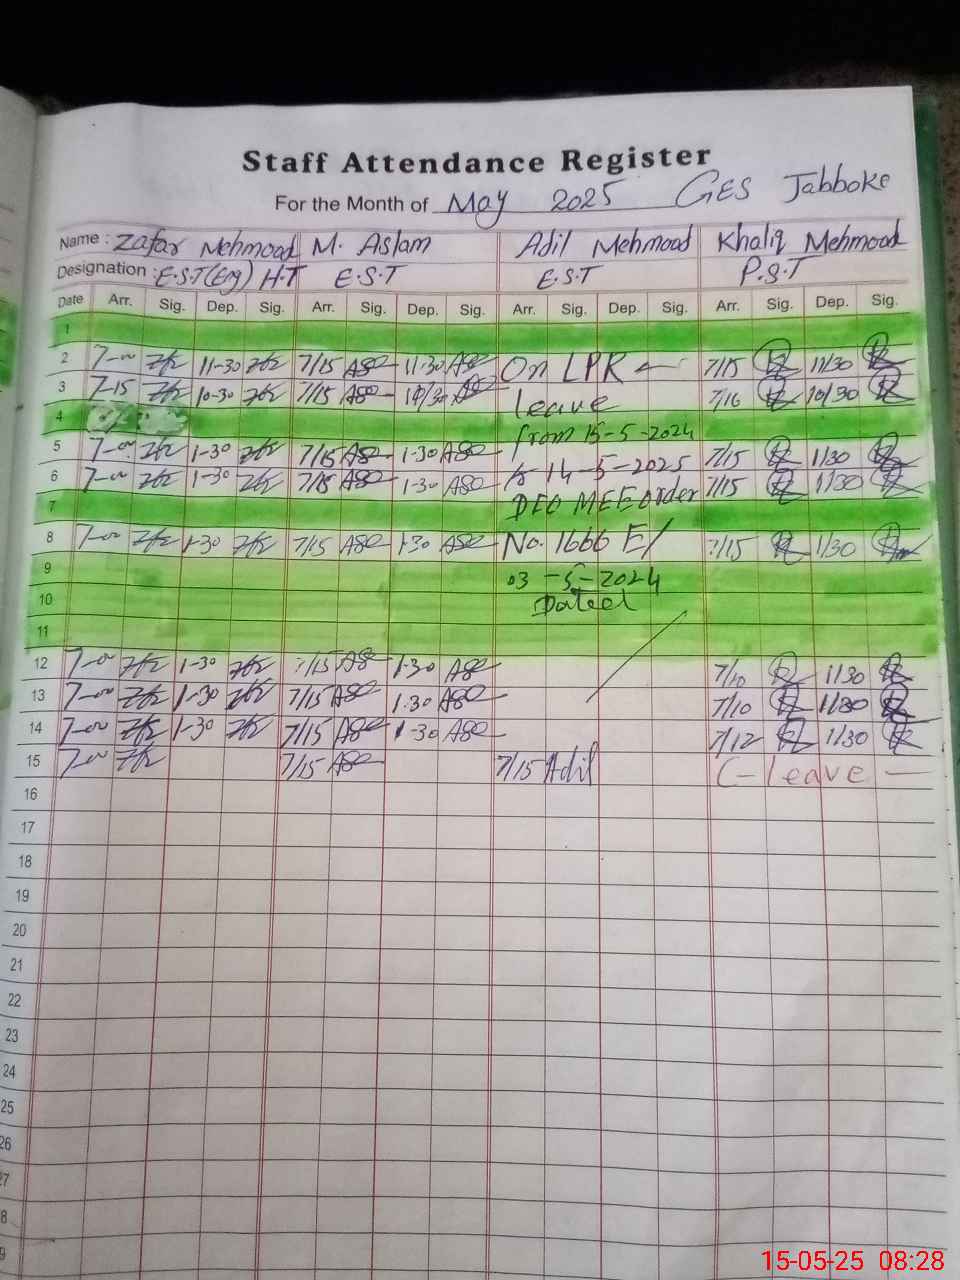 Staff Attendance Register
For the Month of May 2025 GES Jabboke
Name : Zafar Mehmood M. Aslam Adil Mehmood Khaliq Mehmood
Designation : E.S.T(Eng) H.T E.S.T E.S.T P.S.T
Date Arr. Sig. Dep. Sig. Arr. Sig. Dep. Sig. Arr. Sig. Dep. Sig. Arr. Sig. Dep. Sig.
1
2 7-00 11-30 7/15 11-30 On LPR 7/15 11/30
3 7-15 10-30 7/15 10/30 leave 7/16 10/30
4 from 15-5-2024
5 7-00 1-30 7/15 1-30 7/15 1/30
6 7-00 1-30 7/15 1-30 to 14-5-2025 7/15 1/30
7 DEO MEE order
8 7-00 1-30 7/15 1-30 No. 1666 E/ 7/15 1/30
9 03-5-2024
10 Dated
11
12 7-00 1-30 7/15 1-30 7/10 1/30
13 7-00 1-30 7/15 1-30 7/10 1/30
14 7-00 1-30 7/15 1-30 7/12 1/30
15 7-00 7/15 7/15 Adil C-leave
16
17
18
19
20
21
22
23
24
25
26
27
8
9
15-05-25 08:28